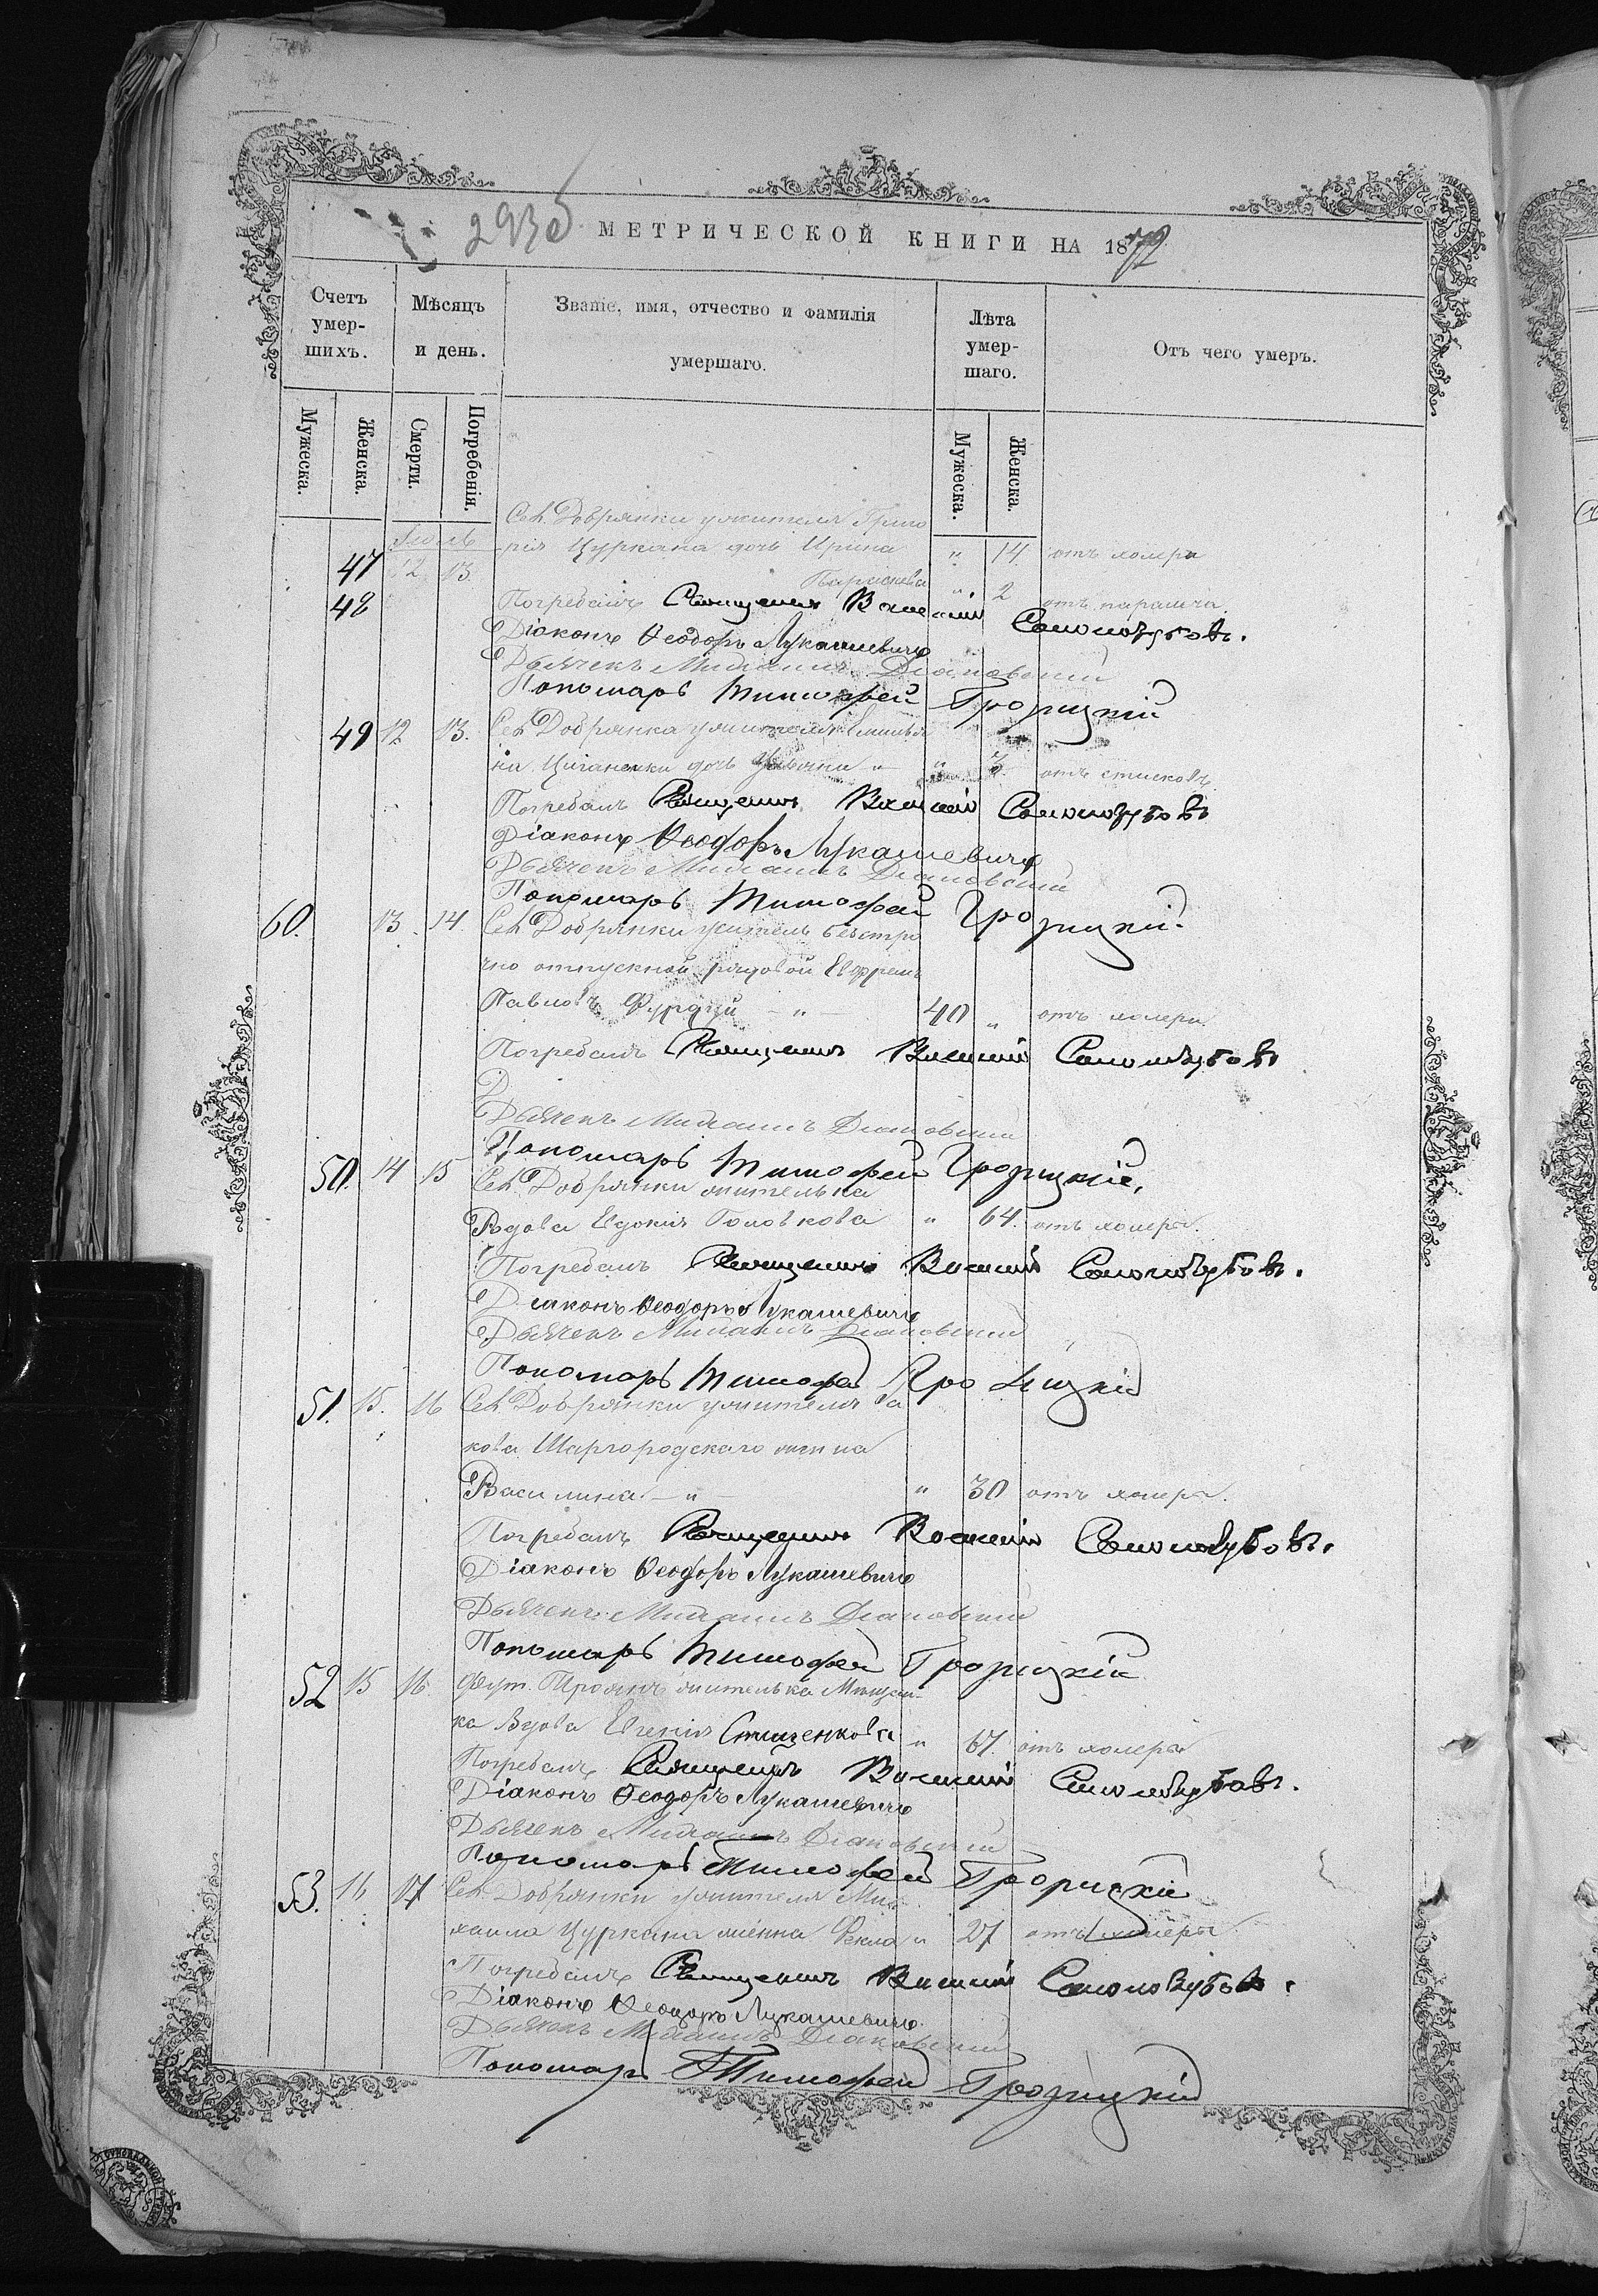 293 об
МЕТРИЧЕСКОЙ КНИГИ НА 1872
Счетъ умер-шихъ.
Мѣсяцъ и день.
Званіе, имя, отчество и фамилія умершаго.
Лѣта умер-шаго.
Отъ чего умеръ.
Мужеска.
Женска.
Смерти.
Погребенія.
Мужеска.
Женска.
Сел. Добрянки жителя Григо
47 12 13. рія Цуркана дочь Ирина " 14. отъ холеры
48 Параскева " 2 отъ паралича.
Погребалъ Священникъ Василій Самолозубовъ.
Діаконъ Ѳеодоръ Лукашевичъ
Дьячекъ Михаилъ
Пономарь Тимофей Грозицкій
49 12 13. Сел. Добрянка жителя Емилья
на Циганенки дочь " " 3 отъ
Погребалъ Священникъ Василій Самолозубовъ
Діаконъ Ѳеодоръ Лукашевичъ
Дьячекъ Михаилъ
Пономарь Тимофей Грозицкій.
60. 13. 14. Сел. Добрянки житель безсро
чно отпускной рядовой Ефремъ
Павловъ " 40 " отъ холеры.
Погребалъ Священникъ Василій Самолозубовъ
Дьячекъ Михаилъ
Пономарь Тимофей Грозицкій.
50. 14 15 Сел. Добрянки жителька
Вдова Евдокія Головкова " 64. отъ холеры.
Погребалъ Священникъ Василій Самолозубовъ.
Діаконъ Ѳеодоръ Лукашевичъ
Дьячекъ Михаилъ
Пономарь Тимофей Грозицкій
51. 15. 16 Сел. Добрянки жителя Іа
кова Шаргородскаго жена
Василина " " 30 отъ холеры.
Погребалъ Священникъ Василій Самолозубовъ.
Діаконъ Ѳеодоръ Лукашевичъ
Дьячекъ Михаилъ
Пономарь Тимофей Грозицкій
52 15 16. жителька Мещан-
ка Вдова Евгенія Стищенкова " 67. отъ холеры
Погребалъ Священникъ Василій Самолозубовъ.
Діаконъ Ѳеодоръ Лукашевичъ
Дьячекъ Михаилъ
Пономарь Тимофей Грозицкій
53. 16 17 Сел. Добрянки жителя Ми-
хаила Цуркана жена Фекла " 27 отъ холеры
Погребалъ Священникъ Василій Самолозубовъ.
Діаконъ Ѳеодоръ Лукашевичъ.
Дьячекъ Михаилъ
Пономарь Тимофей Грозицкій